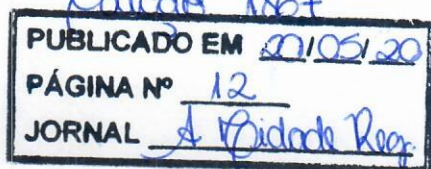 Edição 1867
PUBLICADO EM 20/05/20
PÁGINA Nº 12
JORNAL A Cidade Reg.